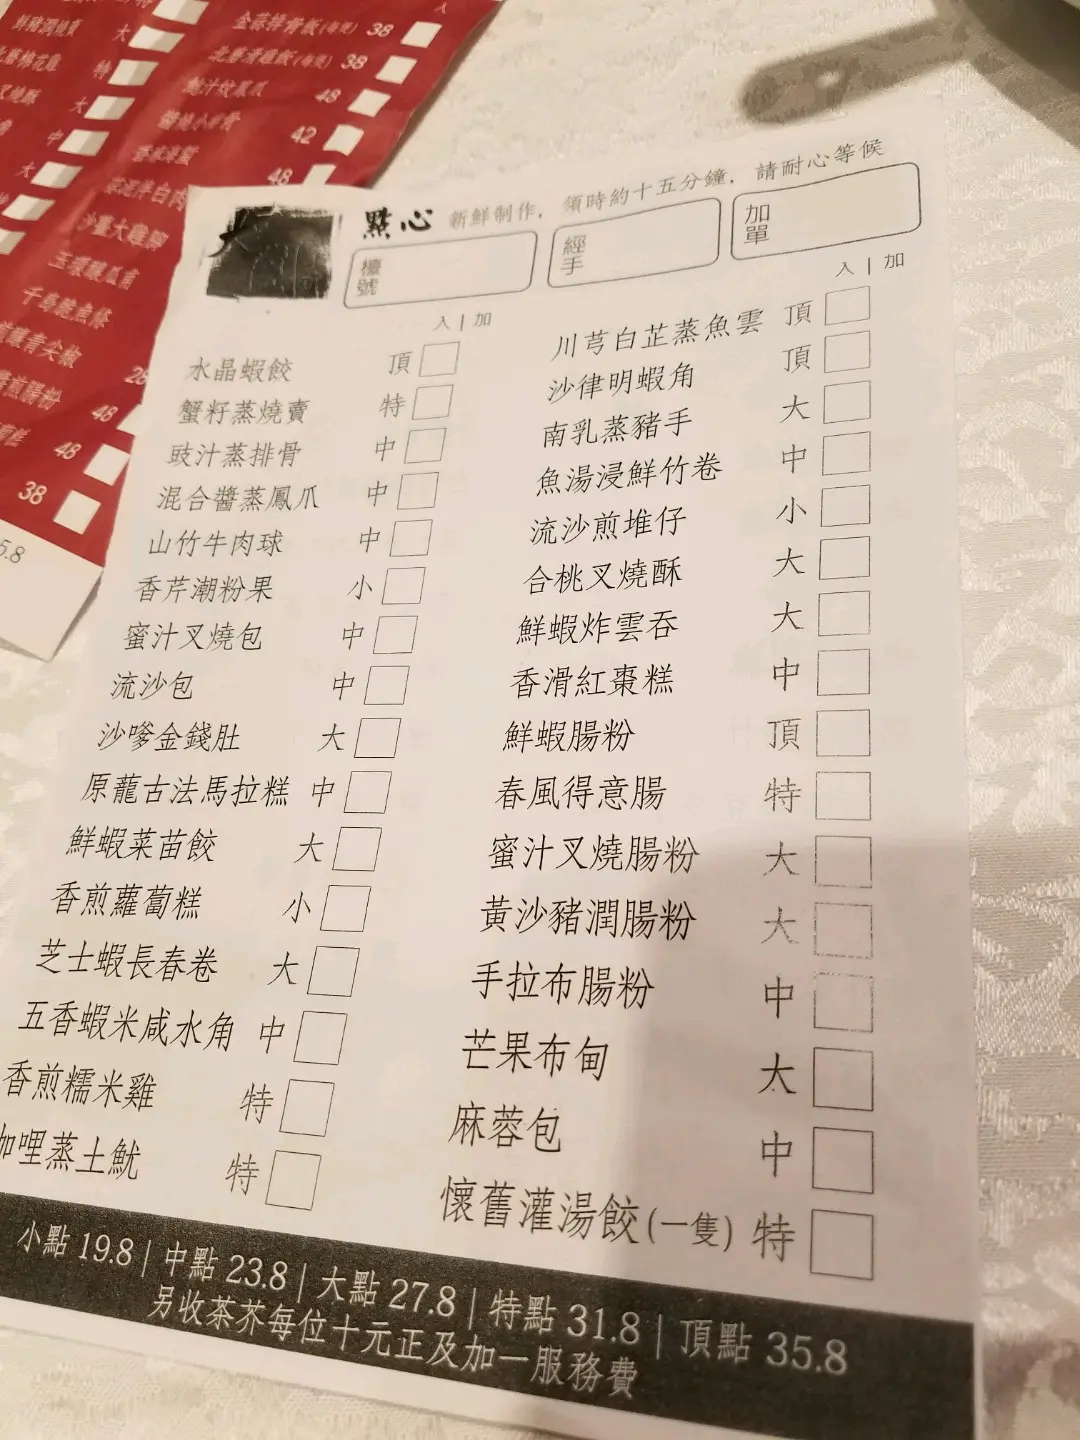 鮮豬潤燒賣 大
特
大
中
大
金蒜排骨飯(每煲) 38
北菇滑雞飯(每煲) 38
鮑汁炆鳳爪 48
42
48
沙薑大雞腳
玉環釀瓜甫
千島脆魚條
28
48
48
38
5.8
點心 新鮮制作，須時約十五分鐘，請耐心等候
檯號
經手
加單
入 | 加
水晶蝦餃 頂
蟹籽蒸燒賣 特
豉汁蒸排骨 中
混合醬蒸鳳爪 中
山竹牛肉球 中
香芹潮粉果 小
蜜汁叉燒包 中
流沙包 中
沙嗲金錢肚 大
原龍古法馬拉糕 中
鮮蝦菜苗餃 大
香煎蘿蔔糕 小
芝士蝦長春卷 大
五香蝦米咸水角 中
香煎糯米雞 特
咖哩蒸土魷 特
入 | 加
川芎白芷蒸魚雲 頂
沙律明蝦角 頂
南乳蒸豬手 大
魚湯浸鮮竹卷 中
流沙煎堆仔 小
合桃叉燒酥 大
鮮蝦炸雲吞 大
香滑紅棗糕 中
鮮蝦腸粉 頂
春風得意腸 特
蜜汁叉燒腸粉 大
黃沙豬潤腸粉 大
手拉布腸粉 中
芒果布甸 大
麻蓉包 中
懷舊灌湯餃(一隻) 特
小點 19.8 | 中點 23.8 | 大點 27.8 | 特點 31.8 | 頂點 35.8
另收茶芥每位十元正及加一服務費